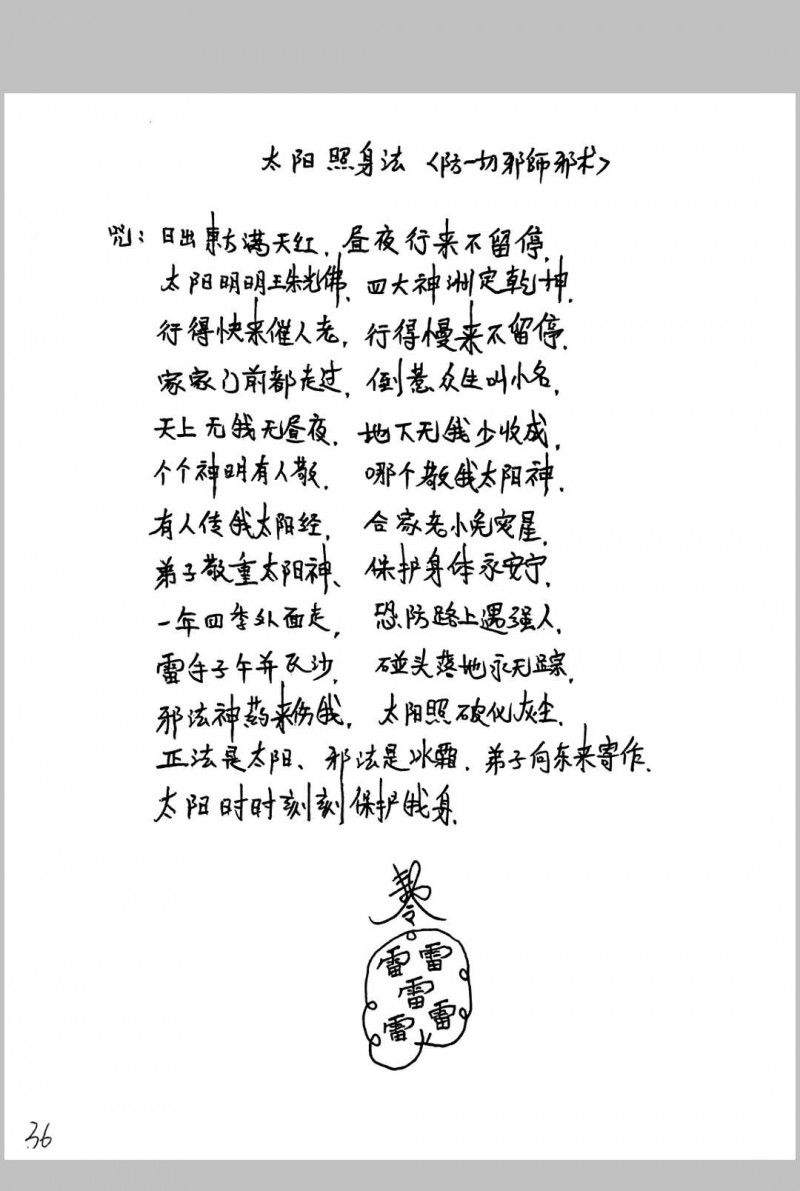 太阳照身法〈防一切邪師邪术〉
咒：日出東方满天红，昼夜行来不留停，
太阳明明王朱光佛、四大神洲定乾坤，
行得快来催人老，行得慢来不留停，
家家门前都走过，倒惹众生叫小名，
天上无我无昼夜，地下无我少收成，
个个神明有人敬，哪个敬我太阳神，
有人传我太阳经，合家老小免灾星，
弟子敬重太阳神、保护身体永安宁，
一年四季外面走，恐防路上遇强人，
雷手子午并瓦沙，碰头落地永无踪，
邪法神药来伤我，太阳照破化灰尘，
正法是太阳、邪法是冰霜，弟子向东来寄作，
太阳时时刻刻保护我身，
令
雷雷
雷
雷雷
36